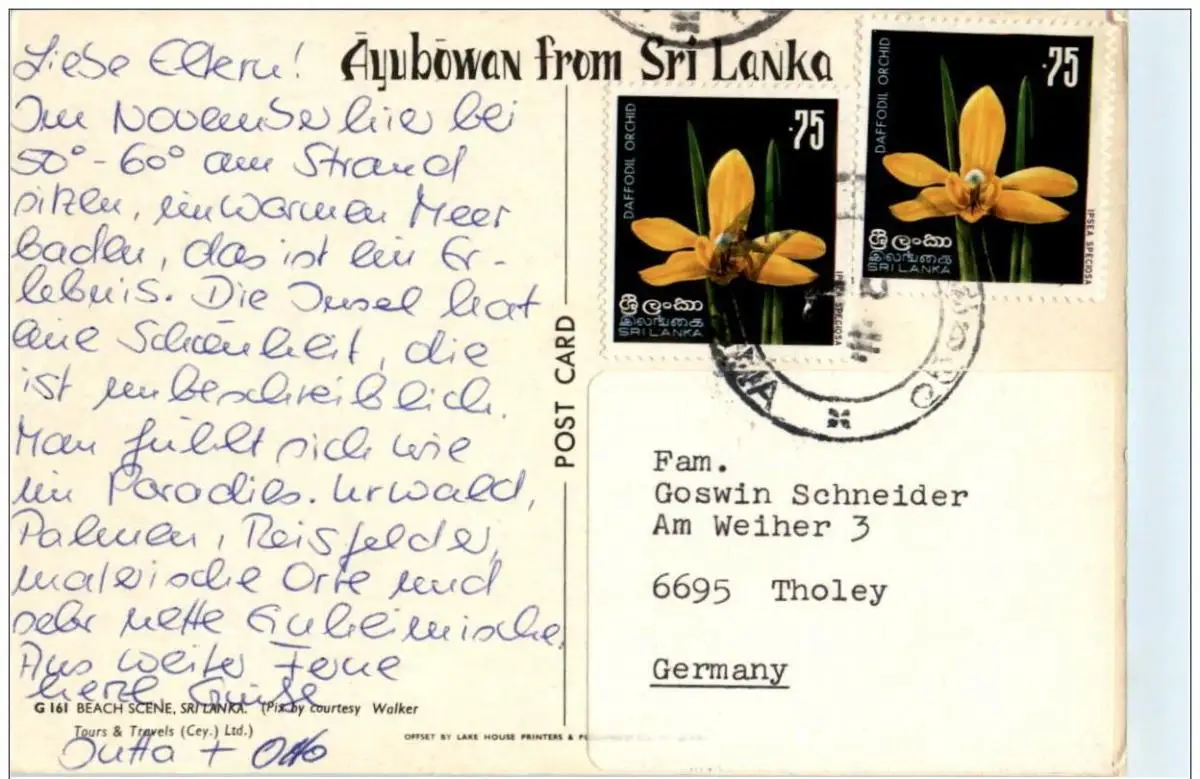 Āyubōwan from Sri Lanka
Liebe Eltern!
Im November hier bei
50°-60° am Strand
sitzen, im warmen Meer
baden, das ist ein Er-
lebnis. Die Insel hat
eine Schönheit, die
ist unbeschreiblich.
Man fühlt sich wie
im Paradies. Urwald,
Palmen, Reisfelder,
malerische Orte und
sehr nette Einheimische.
Aus weiter Ferne
herzl. Grüße
Jutta + Otto
G 161 BEACH SCENE, SRI LANKA. (Pix by courtesy Walker
Tours & Travels (Cey.) Ltd.)
OFFSET BY LAKE HOUSE PRINTERS &
POST CARD
DAFFODIL ORCHID
.75
IPSEA SPECIOSA
ශ්‍රී ලංකා
இலங்கை
SRI LANKA
DAFFODIL ORCHID
.75
IPSEA SPECIOSA
ශ්‍රී ලංකා
இலங்கை
SRI LANKA
Fam.
Goswin Schneider
Am Weiher 3
6695 Tholey
Germany